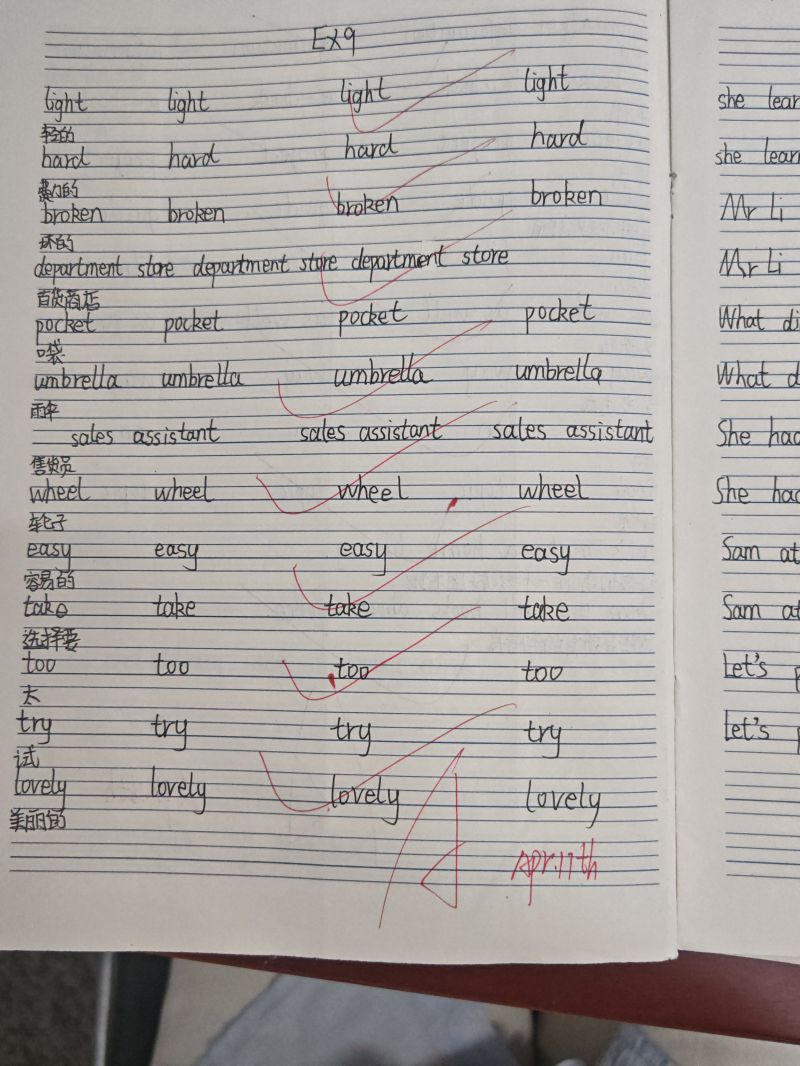 Ex9
light light light light
轻的
hard hard hard hard
费力的
broken broken broken broken
坏的
department store department store department store
百货商店
pocket pocket pocket pocket
口袋
umbrella umbrella umbrella umbrella
雨伞
sales assistant sales assistant sales assistant
售货员
wheel wheel wheel wheel
车轮子
easy easy easy easy
容易的
take take take take
选择要
too too too too
太
try try try try
试
lovely lovely lovely lovely
美丽的
Apr.17th
she lear
she learn
Mr Li
Mr Li
What di
What d
She had
She had
Sam at
Sam at
Let's p
Let's p